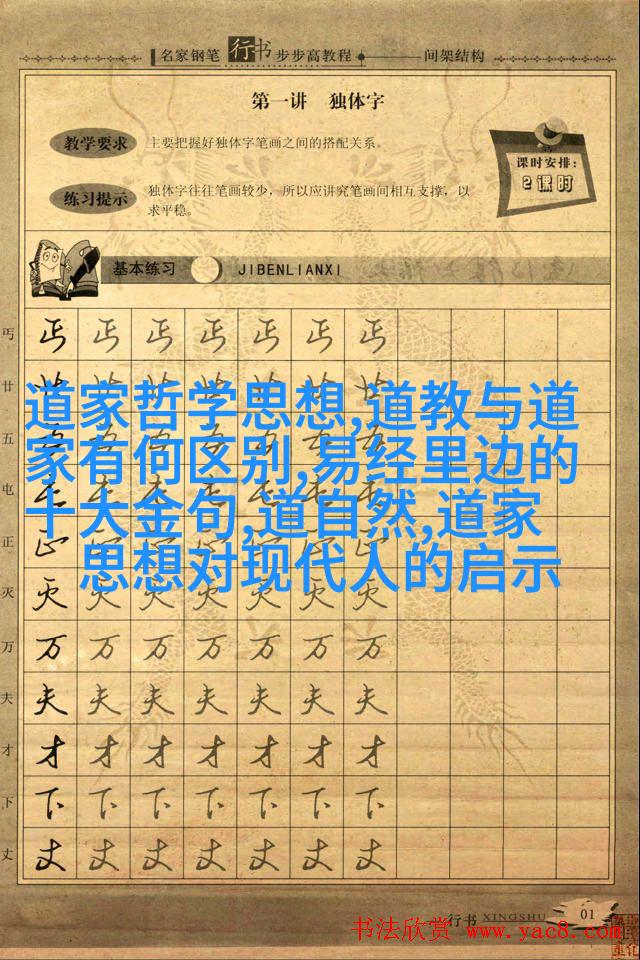 名家钢笔 行书 步步高教程 间架结构
第一讲 独体字
教学要求
主要把握好独体字笔画之间的搭配关系。
课时安排:
2课时
练习提示
独体字往往笔画较少，所以应讲究笔画间相互支撑，以
求平稳。
基本练习 JIBENLIANXI
丐 丐 丐 丐 丐 丐 丐 丐
廿 廿 廿 廿 廿 廿 廿 廿
道家哲学思想,道教与道
五 五 五 五 五 五 五 五
家有何区别,易经里边的
屯 屯 屯 屯 屯 屯 屯 屯
十大金句,道自然,道家
正 正 正 正 正 正 正 正
思想对现代人的启示
灭 灭 灭 灭 灭 灭 灭 灭
万 万 万 万 万 万 万 万
夫 夫 夫 夫 夫 夫 夫 夫
才 才 才 才 才 才 才 才
下 下 下 下 下 下 下 下
丈 丈 丈 丈 丈 丈 丈 丈
行书 XINGSHU 01
书法欣赏 www.yac8.com